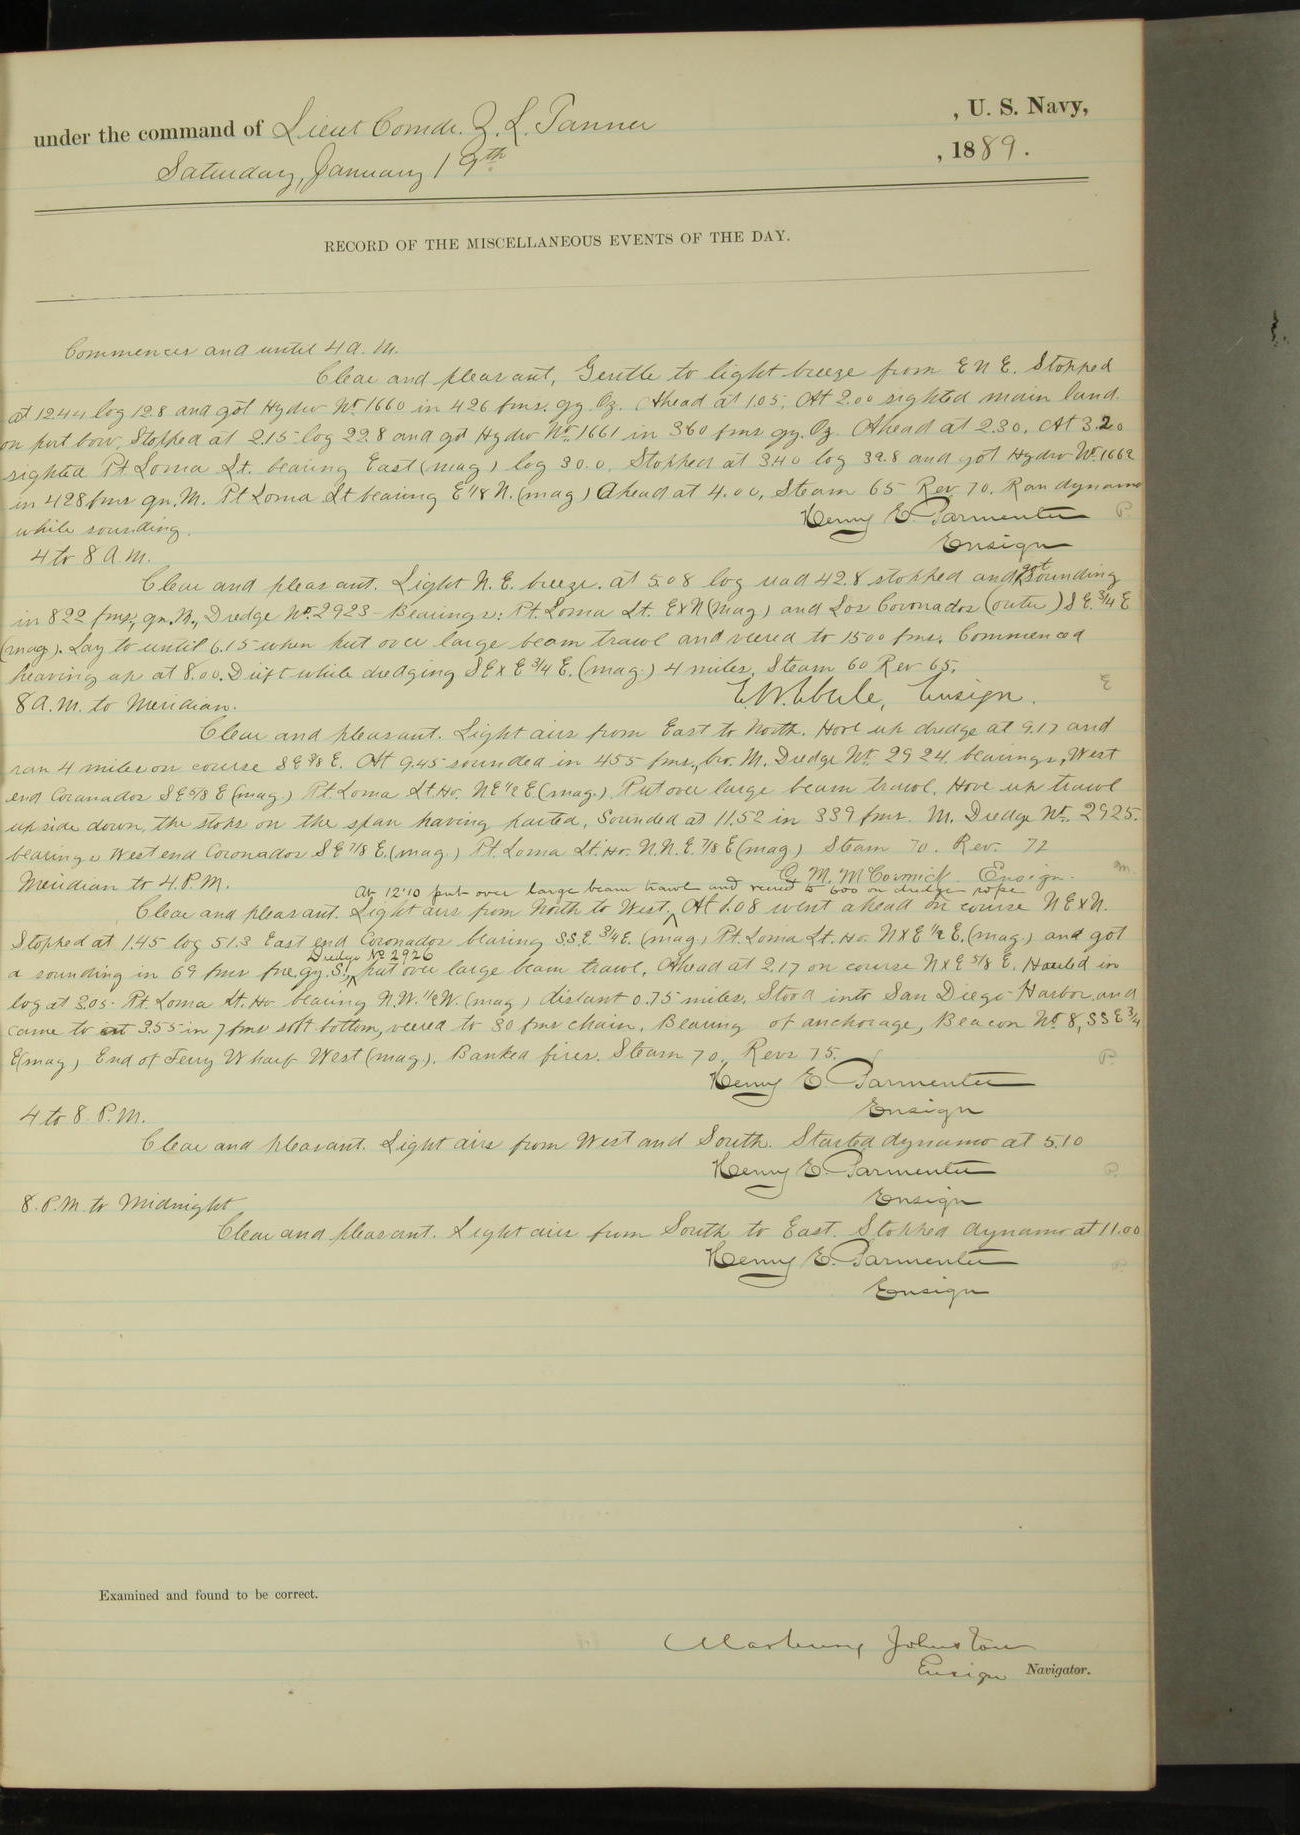 under the command of Lieut Comdr. Z. L. Tanner , U. S. Navy,
Saturday, January 19th , 1889.
RECORD OF THE MISCELLANEOUS EVENTS OF THE DAY.
Commences and until 4 a. m.
Clear and pleasant, Gentle to light breeze from E N E. Stopped
at 12.44 log 12.8 and got Hydro No. 1660 in 426 fms. gy. Oz. Ahead at 1.05. At 2.00 sighted main land
on port bow. Stopped at 2.15 log 22.8 and got Hydro No. 1661 in 360 fms gy. Oz. Ahead at 2.30. At 3.20
sighted Pt Loma Lt. bearing East (mag) log 30.0. Stopped at 3.40 log 32.8 and got Hydro No. 1662
in 428 fms gn. M. Pt Loma Lt bearing E 1/8 N. (mag) Ahead at 4.00, Steam 65 Rev 70. Ran dynamo
while sounding.
Henry E. Parmenter P.
Ensign
4 to 8 A.M.
Clear and pleasant. Light N. E. breeze. at 5.08 log read 42.8 stopped and got sounding
in 822 fms, gn. M., Dredge No. 2923 - Bearings: Pt. Loma Lt. E x N (mag) and Los Coronados (outer) S E 3/4 E
(mag). Lay to until 6.15 when put over large beam trawl and veered to 1500 fms. Commenced
heaving up at 8.00. Drift while dredging S E x E 3/4 E. (mag) 4 miles. Steam 60 Rev 65.
E. W. Eberle, Ensign. E
8 A.M. to Meridian.
Clear and pleasant. Light airs from East to North. Hove up dredge at 9.17 and
ran 4 miles on course S E 7/8 E. At 9.45 sounded in 455 fms., br. M. Dredge No. 2924. bearings, West
end Coranados S E 5/8 E (mag) Pt. Loma Lt. Ho. N E 1/2 E. (mag). Put over large beam trawl. Hove up trawl
up side down, the stops on the span having parted, Sounded at 11.52 in 339 fms. M. Dredge No. 2925.
bearings West end Coronados S E 7/8 E. (mag) Pt. Loma Lt. Ho. N. N. E. 7/8 E (mag) Steam 70. Rev. 72
C. M. McCormick Ensign. m.
Meridian to 4 P.M.
At 12.10 put over large beam trawl and veered to 600 on dredge rope
Clear and pleasant. Light airs from North to West. At 1.08 went ahead on course N E x N.
Stopped at 1.45 log 51.3 East end Coronados bearing S.S.E. 3/4 E. (mag) Pt. Loma Lt. Ho. N x E 1/2 E. (mag) and got
Dredge No. 2926
a sounding in 69 fms fne. gy. S., put over large beam trawl, Ahead at 2.17 on course N x E 5/8 E. Hauled in
log at 3.05. Pt. Loma Lt. Ho. bearing N. W. 1/2 W. (mag) distant 0.75 miles. Stood into San Diego Harbor, and
came to at 3.55 in 7 fms soft bottom, veered to 30 fms chain. Bearing of anchorage, Beacon No. 8, S S E 3/4
E (mag) End of Ferry Wharf West (mag). Banked fires. Steam 70. Revs 75. P.
Henry E. Parmenter
Ensign
4 to 8. P.M.
Clear and pleasant. Light airs from West and South. Started dynamo at 5.10
Henry E. Parmenter P.
Ensign
8. P.M. to Midnight
Clear and pleasant. Light airs from South to East. Stopped dynamo at 11.00
Henry E. Parmenter P.
Ensign
Examined and found to be correct.
Marbury Johnston
Ensign Navigator.